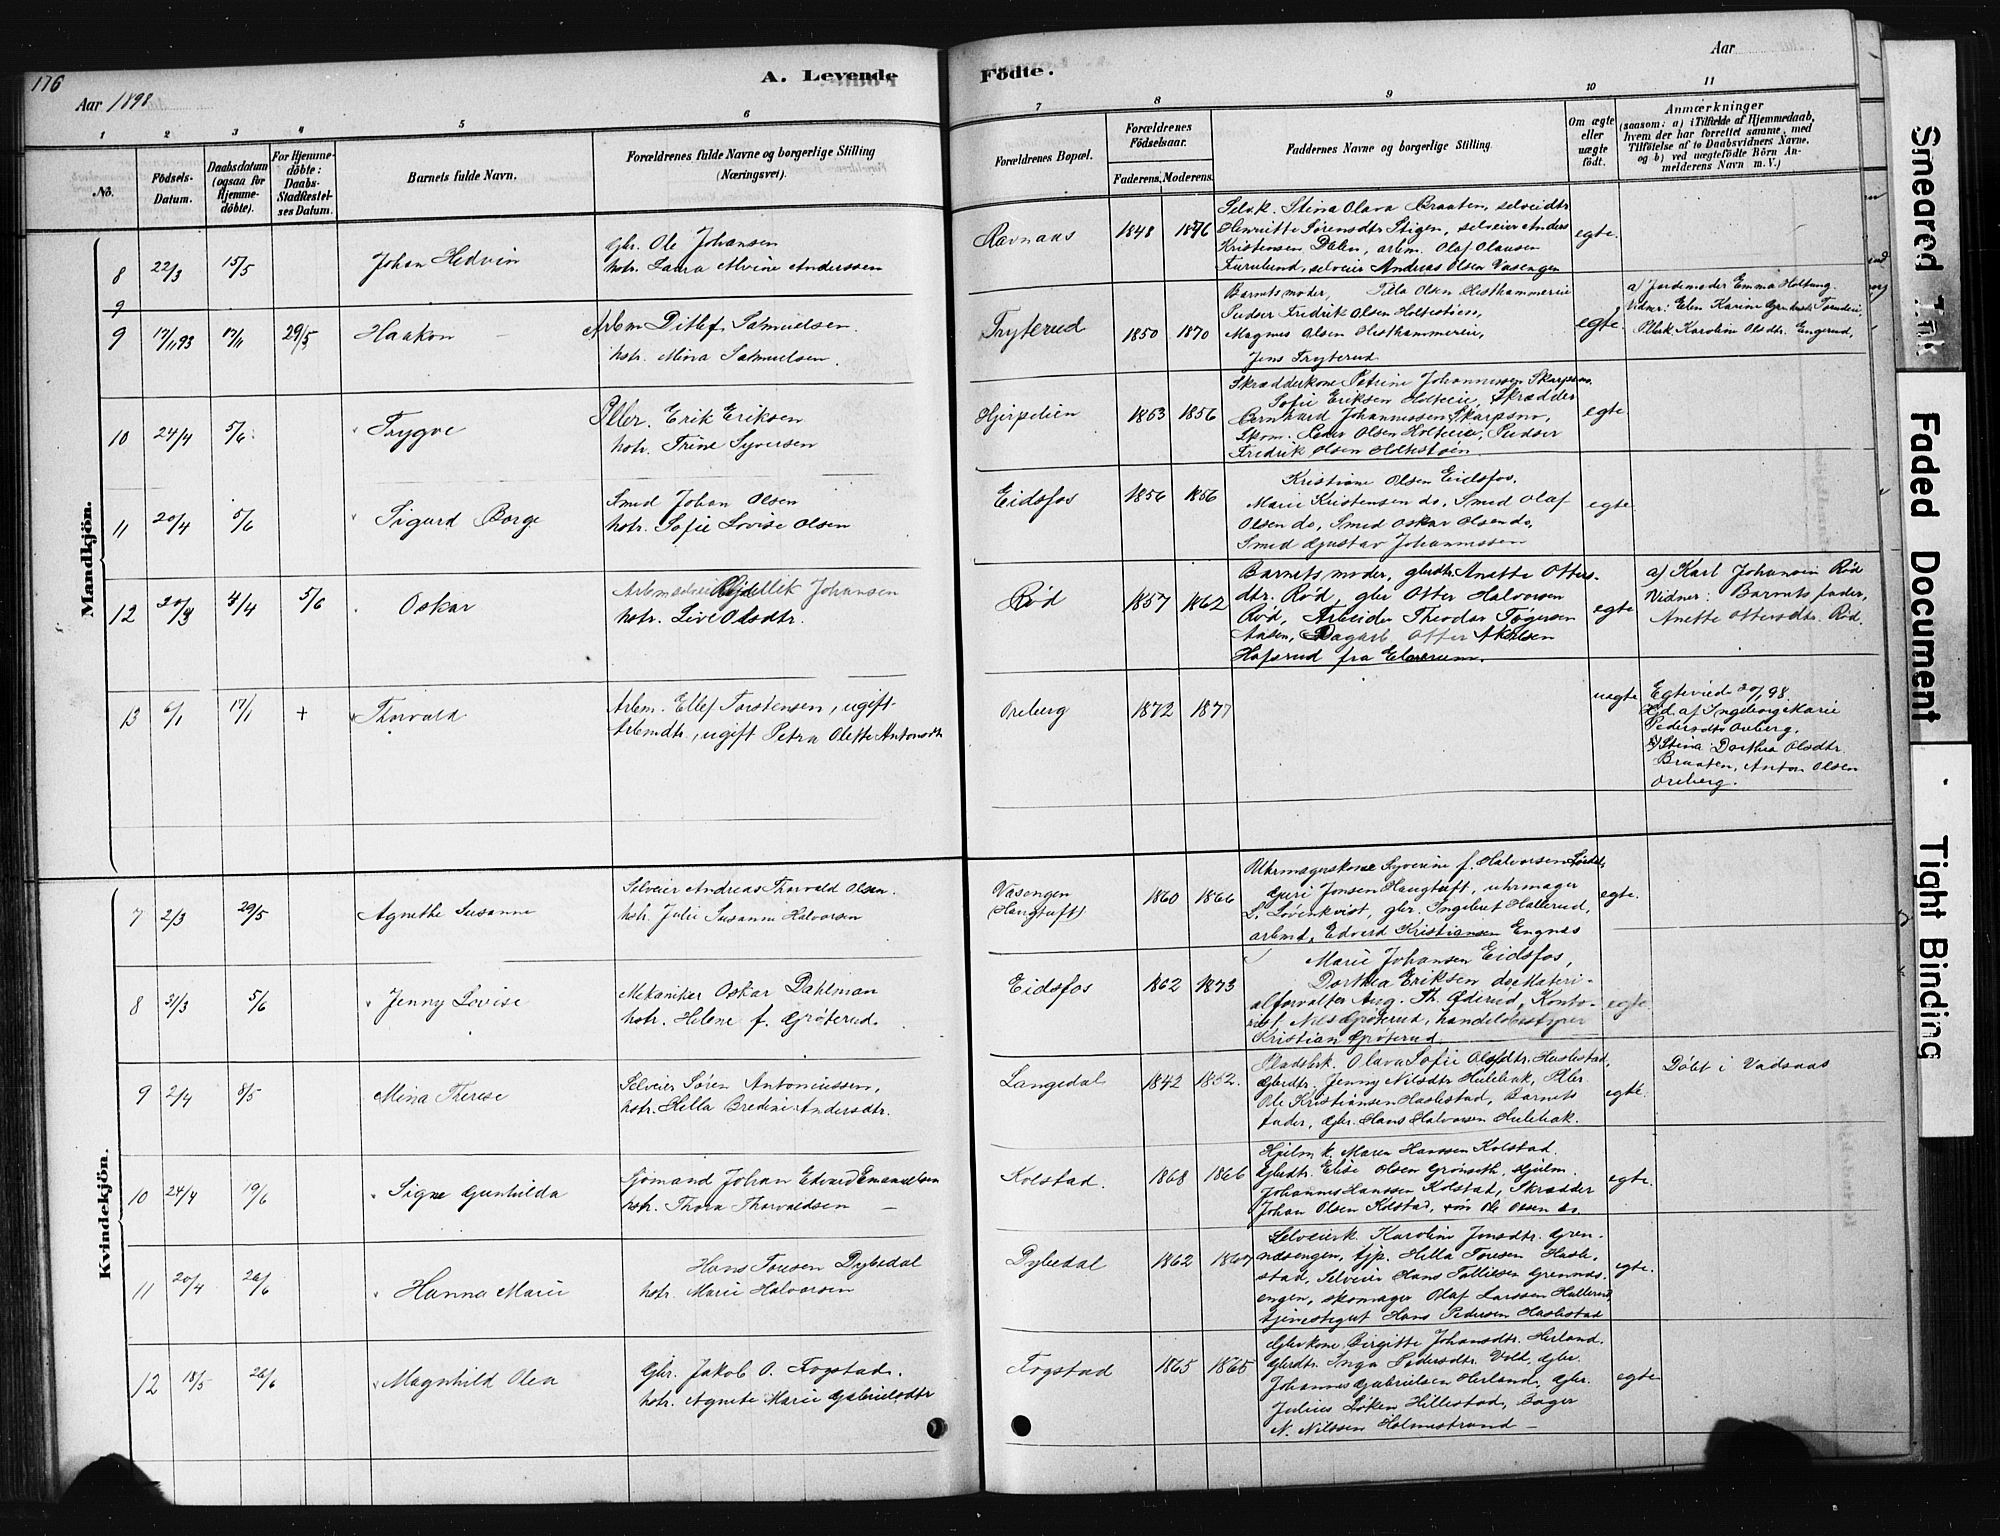 176
Aar 1898
A. Levende
Födte.
Aar
1
2
3
4
5
6
7
8
9
10
11
No.
Födsels-
Datum.
Daabsdatum
(ogsaa for
Hjemme-
döbte).
For Hjemme-
döbte:
Daabs-
Stadfæstel-
ses Datum.
Barnets fulde Navn.
Forældrenes fulde Navne og borgerlige Stilling
(Næringsvei).
Forældrenes Bopæl.
Forældrenes
Födselsaar.
Faderens.
Moderens.
Faddernes Navne og borgerlige Stilling.
Om ægte
eller
uægte
födt.
Anmærkninger
(saasom: a) i Tilfælde af Hjemmedaab,
hvem der har forrettet samme, med
Tilföielse af to Daabsvidners Navne,
og b) ved uægtefödte Börn An-
melderens Navn m. V.)
Mandkjön.
8 22/3 15/5 Johan Hedvin
Gbr. Ole Johansen
hstr. Laura Alvine Anderssen
Ravnaas 1848 1876
Selv.k. Stina Olava Braaten, selveidtr
Henriette Sörensdtr Stigen, selveier Anders
Kristensen Dalen, arbm. Olaf Olausen
Furulund, selveier Andreas Olsen Vasengen
egte.
9
9 17/11 93 17/11 29/5 Haakon
Arbm Ditlef Samuelsen.
hstr. Mina Samuelsen.
Tryterud 1850 1870
Barnets moder, Tilla Olsen Hesthammereie
Pudser Fredrik Olsen Holtestöen,
Magnus Olsen Hesthammereie,
Jens Tryterud
egte
a) Jordemoder Emma Holtung.
Vidner: Elen Karine
Karoline Olsdtr. Engerud,
10 24/4 5/6 Trygve
Pller. Erik Eriksen
hstr. Trine Syversen
Hjerpelien 1863 1856
Skrædderkone Petrine Johannessen Skarpsno,
Sofie Eriksen Holteeie, Skrædder
Bernhard Johannessen Skarpsno,
Skom. Peder Olsen Holteeie, Pudser
Fredrik Olsen Holtestöen.
egte
11 20/4 5/6 Sigurd Borge
Smed Johan Olsen
hstr. Sofie Lovise Olsen
Eidsfos 1856 1856
Kristiane Olsen Eidsfos,
Marie Kristensen do, Smed Olaf
Olsen do, Smed Oskar Olsen do,
Smed Gustav Johannessen
egte
12 20/3 4/4 5/6 Oskar
Johansen
hstr. Live Olsdtr.
Röd 1857 1862
Barnets moder, gbrdtr. Anette Otters-
dtr. Röd, gbr Otter Halvorsen
Röd, Arbeider Theodor Tögersen
Aasen, Dagarb. Otter Akselsen
Hafsrud fra Elverum.
egte
a) Karl Johansen Röd
Vidner: Barnets fader,
Anette Ottersdtr. Röd.
13 6/1 17/1 + Thorvald
Arbm. Ellef Torstensen, ugift
Arbmdtr, ugift Petra Olette Antonsdtr
Oreberg 1872 1877
uegte
Egteviede 20/1 98.
Hjd. af Ingeborg Marie
Pedersdtr Oreberg.
Stina Dorthea Olsdtr.
Braaten, Anton Olsen
Oreberg.
Kvindekjön.
7 2/3 29/5 Agnethe Susanne
Selveier Andreas Thorvald Olsen.
hstr. Julie Susanne Halvorsen
Vasengen
(Haugtuft) 1860 1866
Uhrmagerskone Syverine f. Halvorsen
Guri Jonsen Haugtuft, uhrmager
L. Lövenkvist, gbr. Ingebret Hallerud,
arbmd. Edvard Kristiansen Engnæs
egte.
8 31/3 5/6 Jenny Lovise
Mekaniker Oskar Dahlman
hstr. Helene f. Gröterud.
Eidsfos 1862 1873
Marie Johansen Eidsfos,
Dorthea Eriksen do, Materi-
alforvalter Aug. Th. Öderud, Konto-
rist Nils Gröterud, handelsbestyrer
Kristian Gröterud.
egte
9 2/4 8/5 Mina Therese
Selveier Sören Antoniussen,
hstr. Hella Bredine Andersdtr.
Langedal 1842 1852.
Pladsbk. Olava Sofie Olsdtr. Haslestad,
Gbrdtr. Jenny Nilsdtr Hulebak, Pller
Ole Kristiansen Haslestad, Barnets
fader, Gbr. Hans Halvorsen Hulebak.
egte.
Döbt i Vadsaas
10 24/4 19/6 Signe Gunhilda
Sjömand Johan Edvard Emanuelsen
hstr. Thora Thorvaldsen
Kolstad. 1868 1866
Hjulm.k. Maren Hanssen Kolstad.
Gbrdtr. Elise Olsen Grönseth, Hjulm.
Johannes Hanssen Kolstad, Skrædder
Johan Olsen Kolstad, sön Ole Olsen do
egte.
11 20/4 26/6 Hanna Marie
Hans Toresen Dybedal
hstr. Marie Halvorsen
Dybedal 1862 1867
Selveierk. Karoline Jonsdtr. Gren-
næsengen, tjp. Hilla Toresen Hasle-
stad, Selveier Hans Tollefsen Grennæs-
engen, skomager Olaf Larssen Hallerud
tjenestegut Hans Pedersen Haslestad
egte.
12 18/5 26/6 Magnhild Olea
Gbr. Jakob O. Fogstad.
hstr. Agnete Marie Gabrielsdtr
Fogstad 1865 1865
Gbrkone Birgitte Johansdtr. Herland.
Gbrdtr. Inga Pedersdtr. Vold, Gbr.
Johannes Gabrielsen Herland, Gbr.
Julius Löken Hillestad, Bager
N. Nilssen Holmestrand
egte
Smeared Ink
Faded Document
Tight Binding